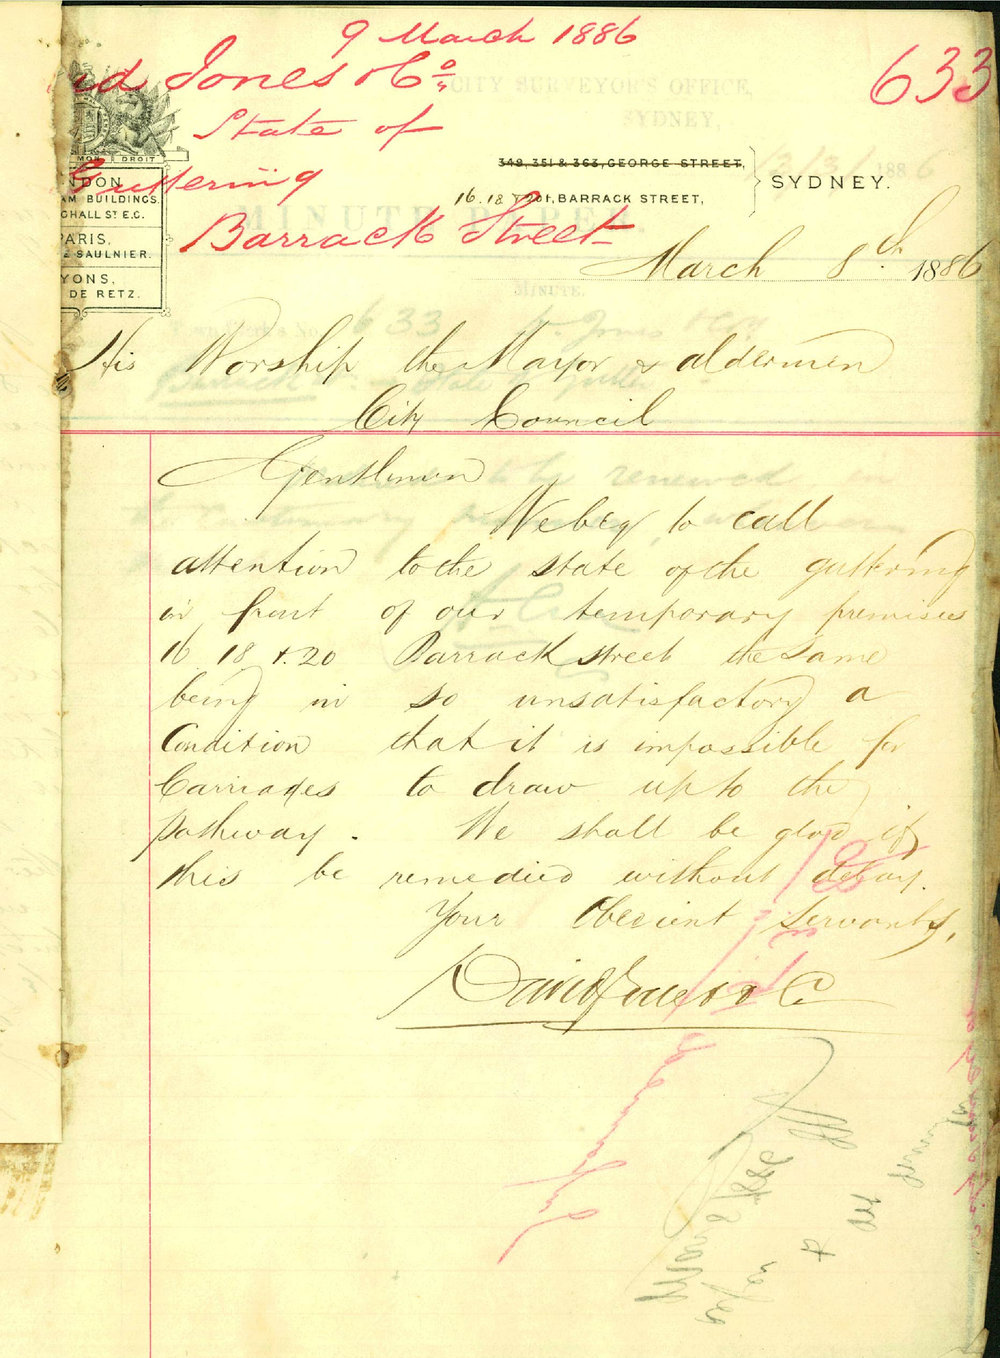 9 March 1886
633
id Jones & Co.
CITY SURVEYOR'S OFFICE,
SYDNEY,
State of
MON DROIT
349, 351 & 363, GEORGE STREET,
1886
Guttering
NDON
AM BUILDINGS.
GHALL ST E.C.
16. 18 & 20, BARRACK STREET,
SYDNEY.
MINUTE PAPER.
Barrack Street
PARIS,
E SAULNIER.
YONS,
DE RETZ.
March 8th 1886
MINUTE.
633
His Worship the Mayor & aldermen
City Council
Gentlemen
We beg to call
attention to the state of the guttering
in front of our temporary premises
16 18 & 20 Barrack street the same
being in so unsatisfactory a
Condition that it is impossible for
Carriages to draw up to the
pathway. We shall be glad if
this be remedied without delay.
Your Obedient Servants,
David Jones & Co